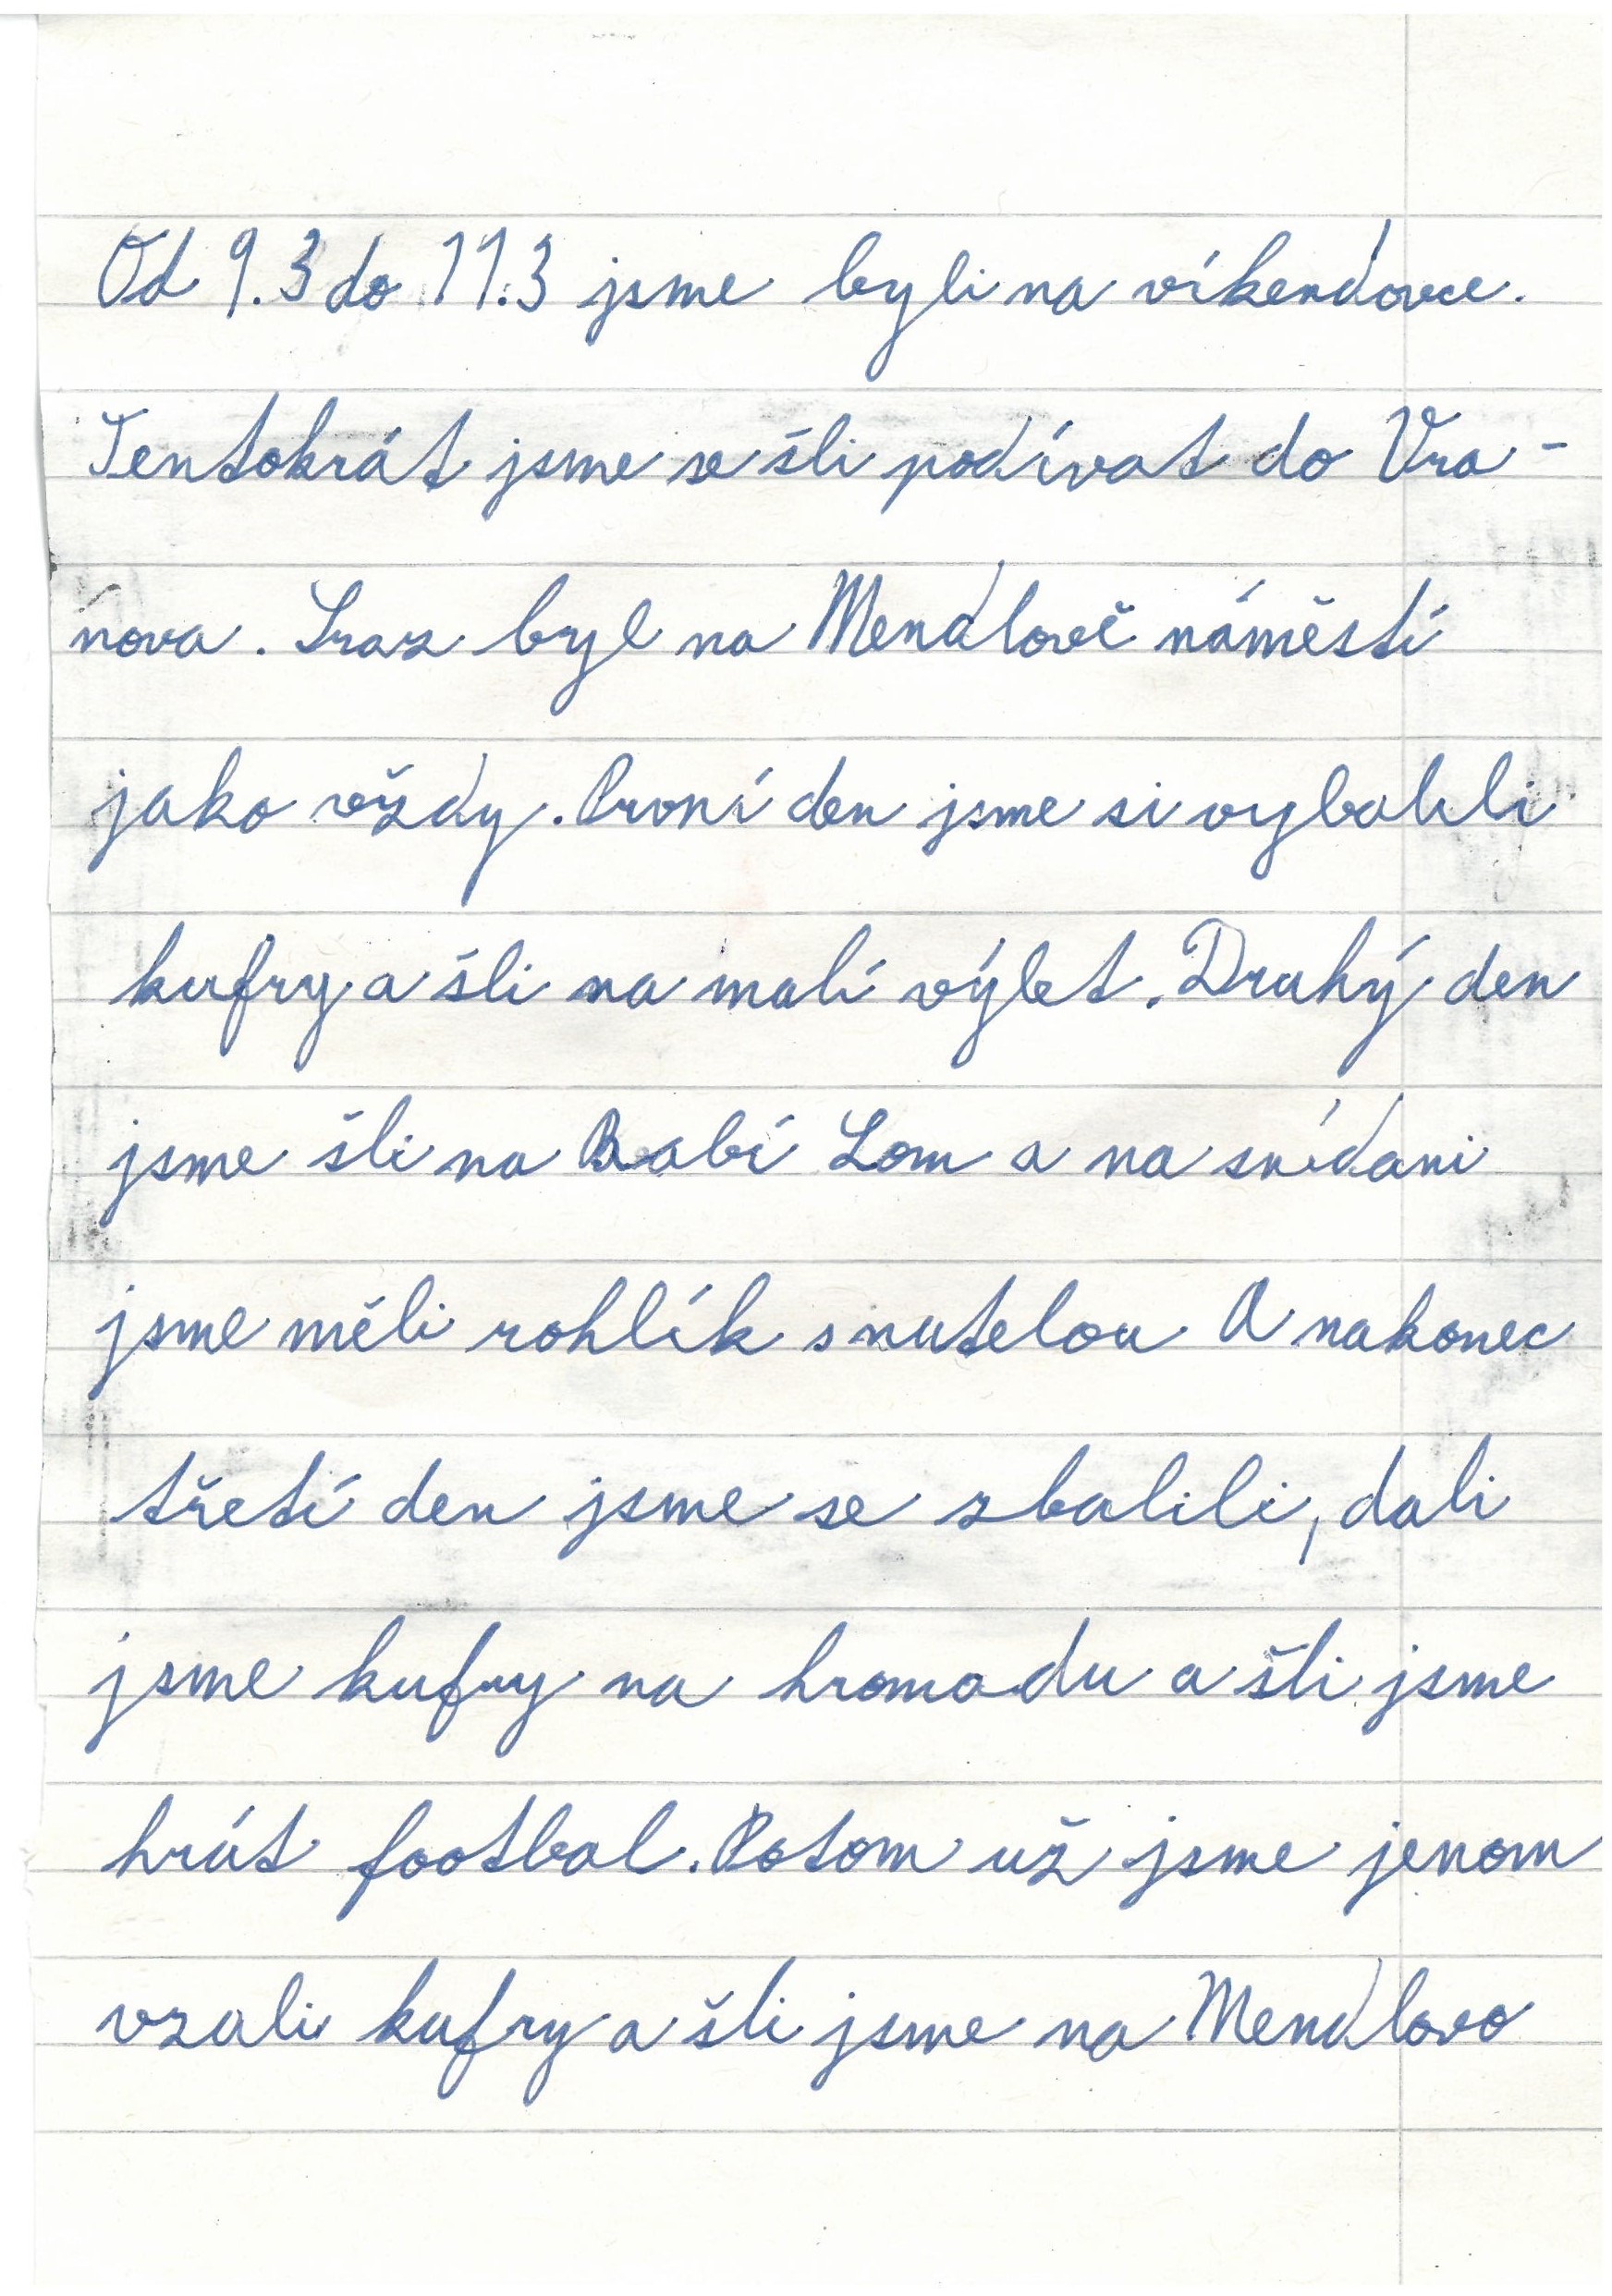 Od 9.3 do 11.3 jsme byli na víkendovce.
Tentokrát jsme se šli podívat do Vra-
nova. Sraz byl na Mendlově náměstí
jako vždy. První den jsme si vybalili
kufry a šli na malí výlet. Druhý den
jsme šli na Babí Lom a na snídani
jsme měli rohlík s nutelou A nakonec
třetí den jsme se zbalili, dali
jsme kufry na hromadu a šli jsme
hrát footbal. Potom už jsme jenom
vzali kufry a šli jsme na Mendlovo